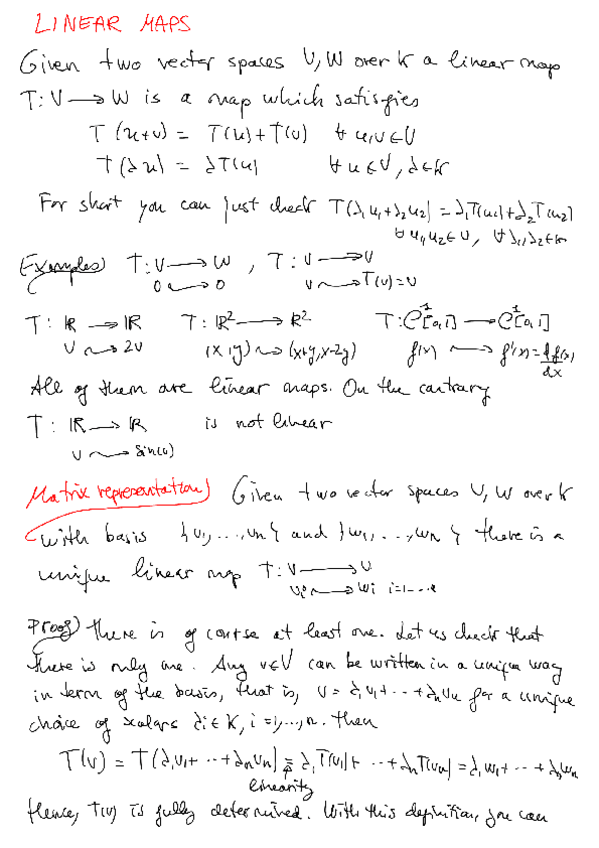 LINEAR MAPS
Given two vector spaces V, W over K a linear map
T: V → W is a map which satisfies
T(u+v) = T(u)+T(v) ∀ u,v ∈ V
T(λu) = λT(u) ∀ u ∈ V, λ ∈ K
For short you can just check T(λ₁u₁+λ₂u₂) = λ₁T(u₁)+λ₂T(u₂)
∀ u₁,u₂ ∈ V, ∀ λ₁,λ₂ ∈ K
Examples) T: V → W , T: V → V
0 ⇝ 0 v ⇝ T(v)=v
T: ℝ → ℝ T: ℝ² → ℝ² T: C¹[0,1] → C¹[0,1]
v ⇝ 2v (x,y) ⇝ (x+y, x-2y) f(x) ⇝ f'(x) = df(x)/dx
All of them are linear maps. On the contrary
T: ℝ → ℝ is not linear
v ⇝ sin(v)
Matrix representation) Given two vector spaces V, W over K
with basis {v₁, ..., vn} and {w₁, ..., wn} there is a
unique linear map T: V → V
vi ⇝ wi i=1...
Proof) There is of course at least one. Let us check that
there is only one. Any v∈V can be written in a unique way
in term of the basis, that is, v = λ₁v₁+ ··· +λnvn for a unique
choice of scalars λi ∈ K, i=1,...,n. Then
T(v) = T(λ₁v₁+ ··· +λnvn) = λ₁T(v₁)+ ··· +λnT(vn) = λ₁w₁+ ··· +λnwn
linearity
Hence, T(v) is fully determined. With this definition, you can